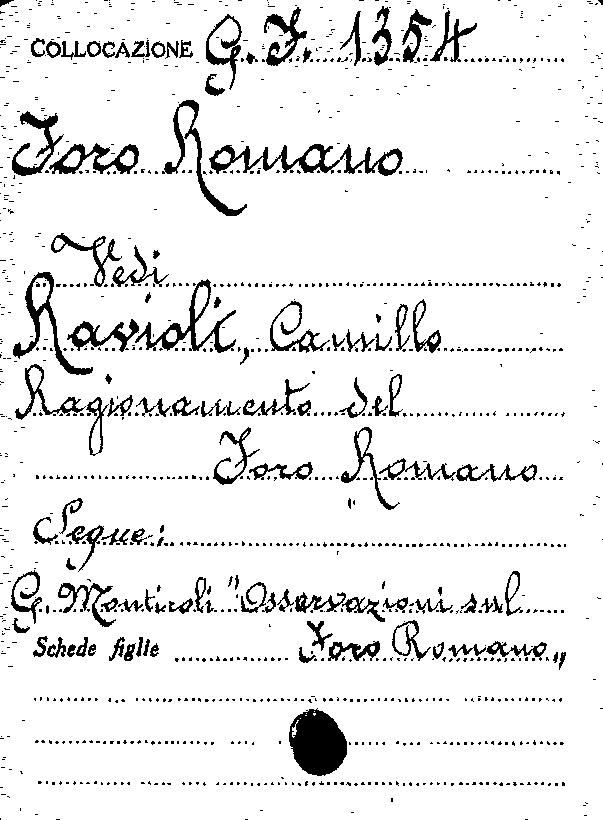 COLLOCAZIONE G. F. 1354
Foro Romano
Vedi
Ravioli, Camillo
Ragionamento del
Foro Romano
Segue:
G. Montiroli "Osservazioni sul
Schede figlie Foro Romano„